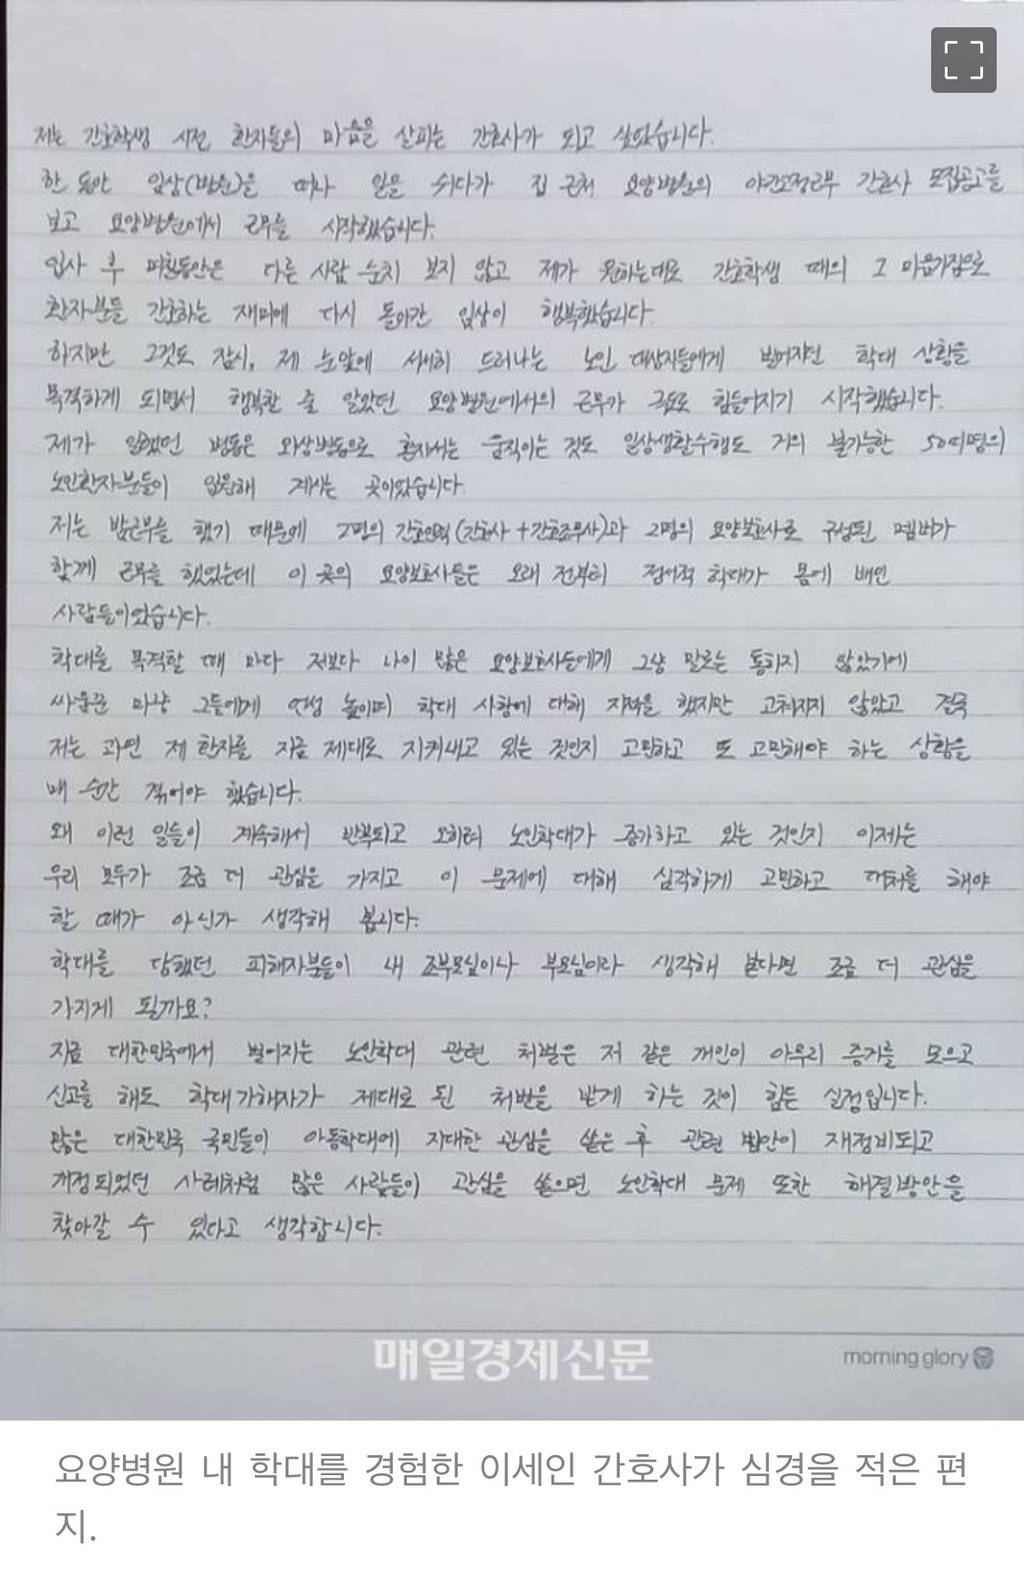 저는 간호학생 시절 환자들의 마음을 살피는 간호사가 되고 싶었습니다.
한 동안 임상(병원)을 떠나 일을 쉬다가 집 근처 요양병원의 야간고정근무 간호사 모집공고를
보고 요양병원에서 근무를 시작했습니다.
입사 후 며칠동안은 다른 사람 눈치 보지 않고 제가 원하는대로 간호학생 때의 그 마음가짐으로
환자분들 간호하는 재미에 다시 돌아간 임상이 행복했습니다.
하지만 그것도 잠시, 제 눈앞에 서서히 드러나는 노인 대상자들에게 벌어지던 학대 상황을
목격하게 되면서 행복한 줄 알았던 요양병원에서의 근무가 극도로 힘들어지기 시작했습니다.
제가 일했던 병동은 와상병동으로 혼자서는 움직이는 것도 일상생활수행도 거의 불가능한 50여명의
노인환자분들이 입원해 계시는 곳이었습니다.
저는 밤근무를 했기 때문에 2명의 간호인력(간호사+간호조무사)과 2명의 요양보호사로 구성된 멤버가
함께 근무를 했었는데 이 곳의 요양보호사들은 오래 전부터 정서적 학대가 몸에 배인
사람들이었습니다.
학대를 목격할 때 마다 저보다 나이 많은 요양보호사들에게 그냥 말로는 통하지 않았기에
싸움꾼 마냥 그들에게 언성 높이며 학대 사항에 대해 지적을 했지만 고쳐지지 않았고 결국
저는 과연 제 환자를 지금 제대로 지켜내고 있는 것인지 고민하고 또 고민해야 하는 상황을
매 순간 겪어야 했습니다.
왜 이런 일들이 계속해서 반복되고 오히려 노인학대가 증가하고 있는 것인지 이제는
우리 모두가 조금 더 관심을 가지고 이 문제에 대해 심각하게 고민하고 대처를 해야
할 때가 아닌가 생각해 봅니다.
학대를 당했던 피해자분들이 내 조부모님이나 부모님이라 생각해 본다면 조금 더 관심을
가지게 될까요?
지금 대한민국에서 벌어지는 노인학대 관련 처벌은 저 같은 개인이 아무리 증거를 모으고
신고를 해도 학대가해자가 제대로 된 처벌을 받게 하는 것이 힘든 실정입니다.
많은 대한민국 국민들이 아동학대에 지대한 관심을 쏟은 후 관련 법안이 재정비되고
개정되었던 사례처럼 많은 사람들이 관심을 쏟으면 노인학대 문제 또한 해결방안을
찾아갈 수 있다고 생각합니다.
매일경제신문
morning glory
요양병원 내 학대를 경험한 이세인 간호사가 심경을 적은 편
지.